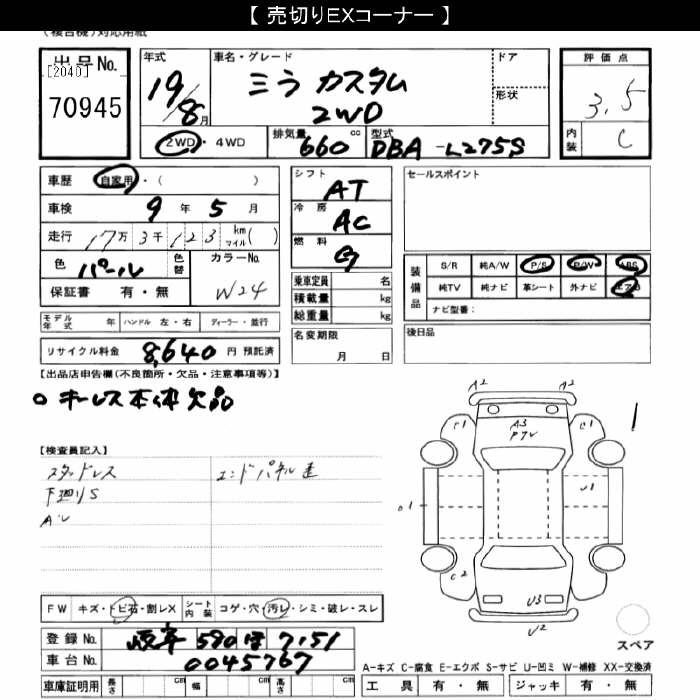 【 売切りEXコーナー 】
(複合機)対応用紙
出品No.
[2040]
70945
年式 19/8月
車名・グレード ミラ カスタム 2WD
ドア
形状
評価点 3.5
内装 C
2WD・4WD 排気量 660 cc 型式 DBA-L275S
車歴 自家用・( )
車検 9年 5月
走行 17万 3千 123 km マイル( )
色 パール 色替 カラーNo. W24
保証書 有・無
シフト AT
冷房 AC
燃料 G
乗車定員 名
積載量 kg
総重量 kg
名変期限 月 日
セールスポイント
装備品 S/R 純A/W P/S P/W ABS
純TV 純ナビ 革シート 外ナビ エアB
ナビ型番：
後日品
モデル年式 年 ハンドル 左・右 ディーラー・並行
リサイクル料金 8,640 円 預託済
【出品店申告欄(不良箇所・欠品・注意事項等)】
キーレス本体欠品
【検査員記入】
スタッドレス エンドパネル
下廻りS
AW
FW キズ・トビ石・割レX シート内装 コゲ・穴・汚レ・シミ・破レ・スレ
登録No. 岐阜 580 ほ 7151
車台No. 0045767
車庫証明用 長さ cm 幅 cm 高さ cm
A2 A2
C1 A3 C1
U1
C2 U3
U2
スペア
A-キズ C-腐食 E-エクボ S-サビ U-凹ミ W-補修 XX-交換済
工具 有・無 ジャッキ 有・無